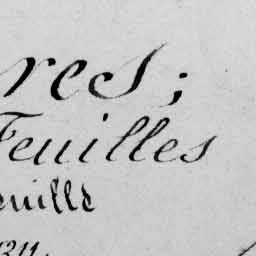 res;
Feuilles
euille